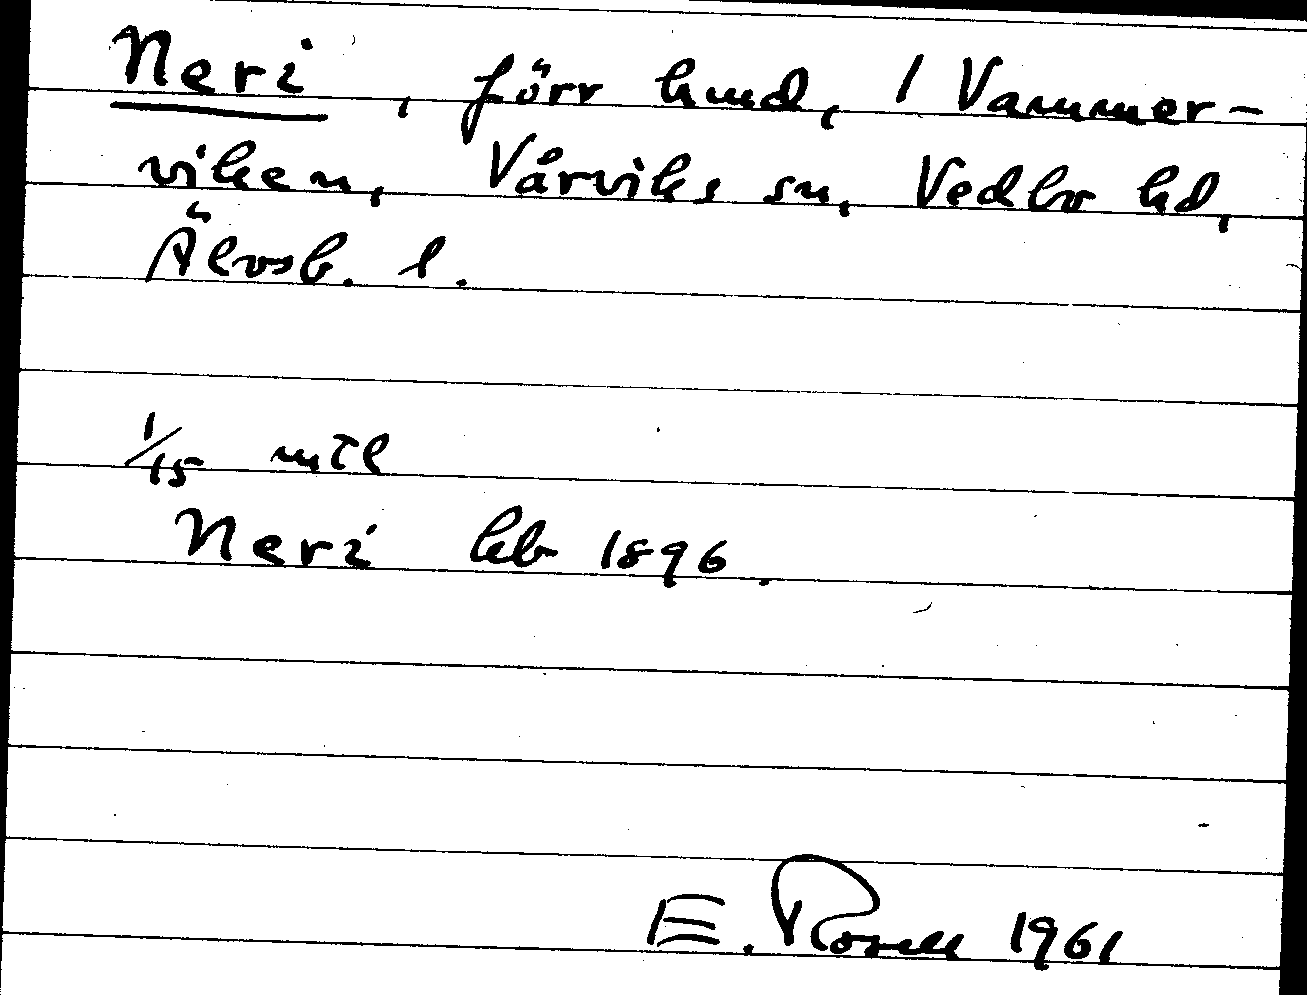 Neri, förr hmd, / Vammer-
viken, Vårviks sn, Vedbo hd,
Älvsb. l.
1/15 mtl
Neri kb 1896.
E. Rosell 1961